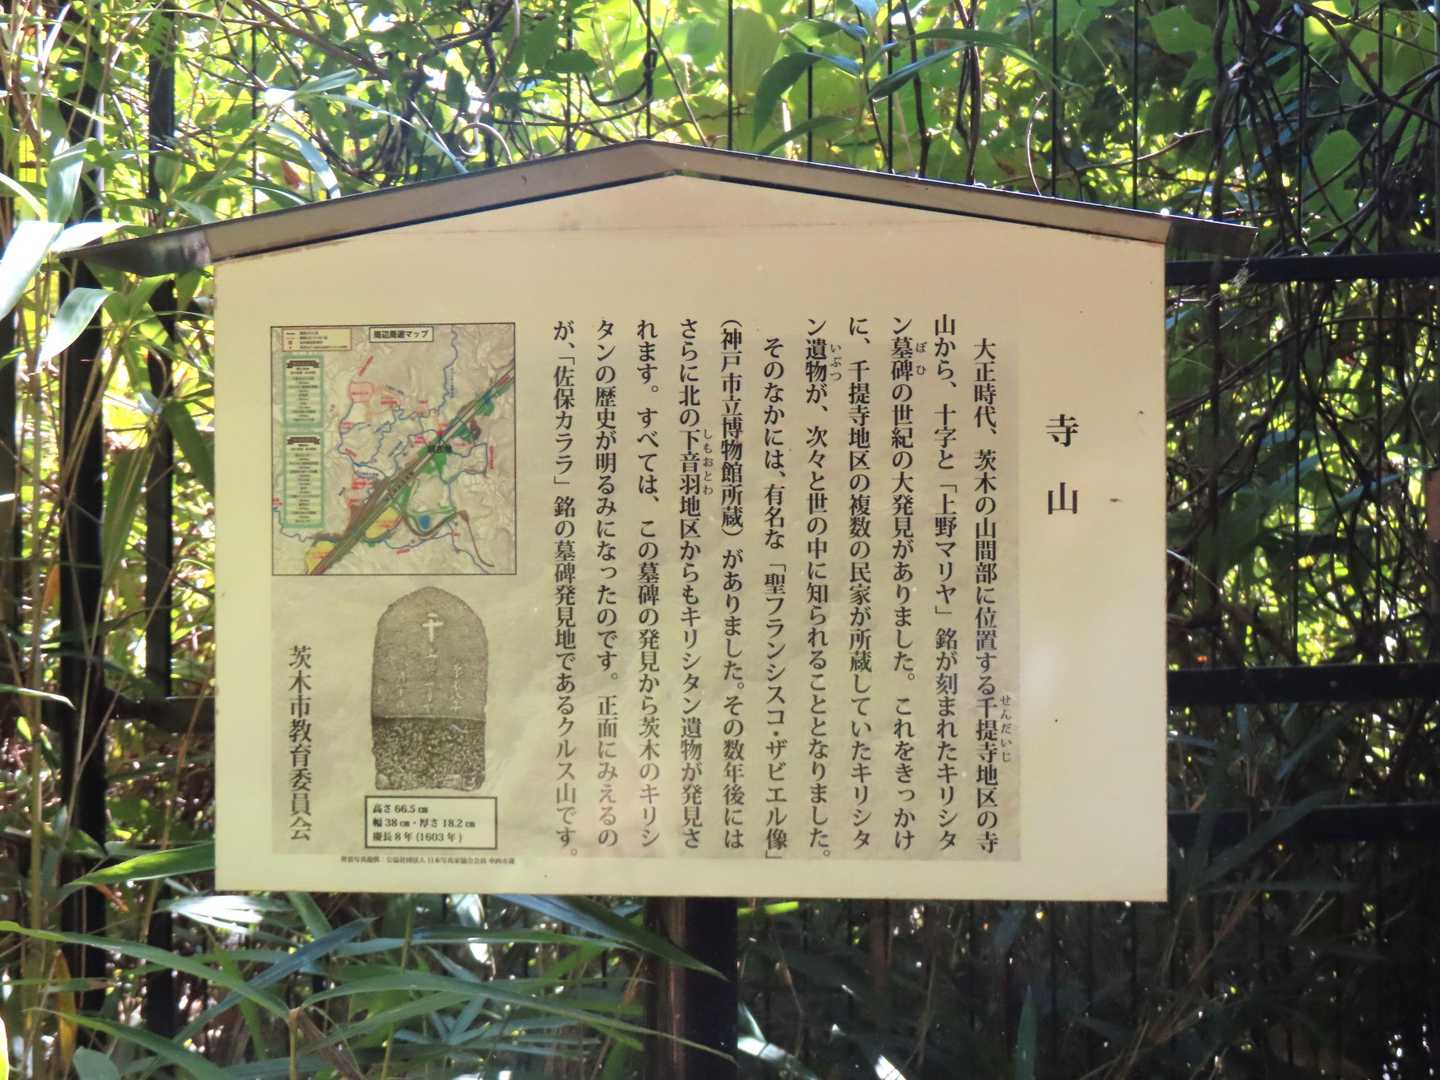 寺山
大正時代、茨木の山間部に位置する千提寺地区の寺
せんだいじ
山から、十字と「上野マリヤ」銘が刻まれたキリシタ
ン墓碑の世紀の大発見がありました。これをきっかけ
ぼひ
に、千提寺地区の複数の民家が所蔵していたキリシタ
ン遺物が、次々と世の中に知られることとなりました。
いぶつ
そのなかには、有名な「聖フランシスコ・ザビエル像」
（神戸市立博物館所蔵）がありました。その数年後には
さらに北の下音羽地区からもキリシタン遺物が発見さ
しもおとわ
れます。すべては、この墓碑の発見から茨木のキリシ
タンの歴史が明るみになったのです。正面にみえるの
が、「佐保カララ」銘の墓碑発見地であるクルス山です。
周辺周遊マップ
高さ 66.5㎝
幅 38㎝・厚さ 18.2㎝
慶長8年(1603年)
茨木市教育委員会